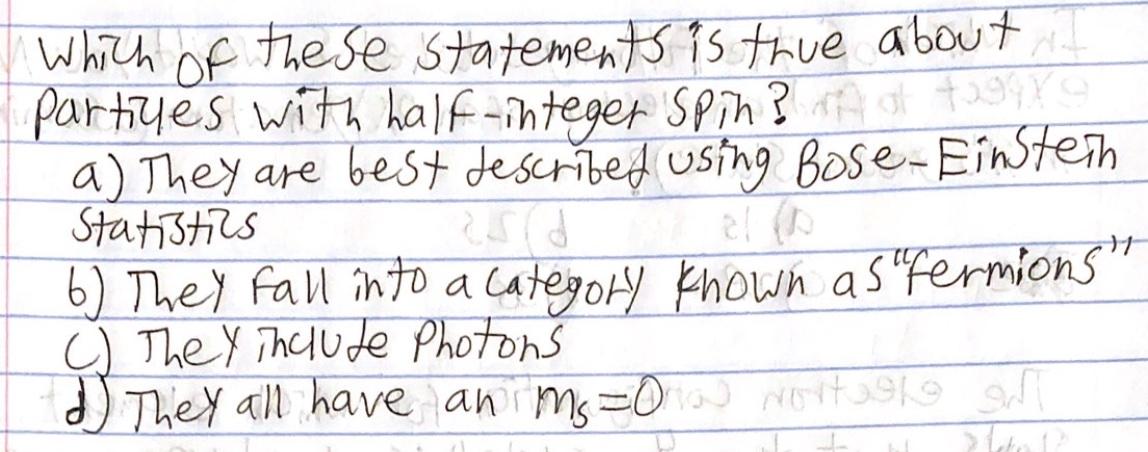 Which of these statements is true about
particles with half-integer spin?
a) They are best described using Bose-Einstein
statistics
b) They fall into a category known as "fermions"
c) They include photons
d) They all have an ms=0